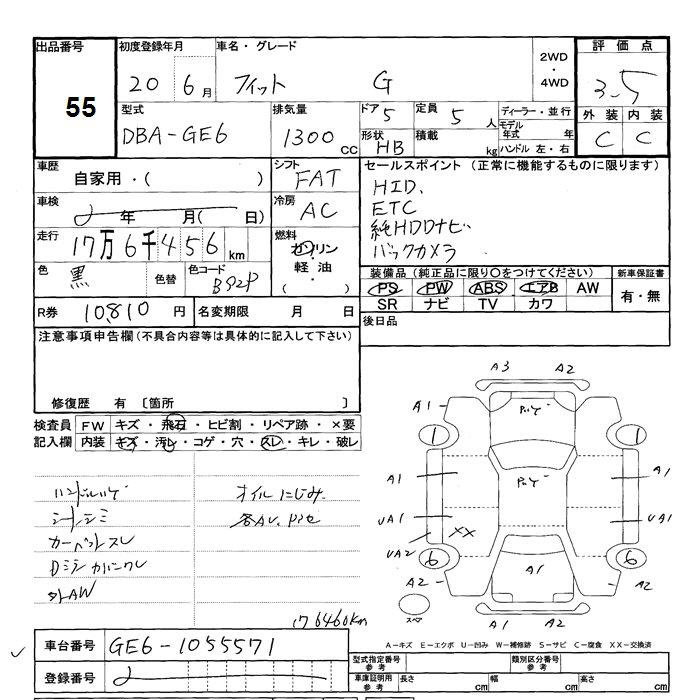 出品番号 初度登録年月 車名・グレード 2WD・4WD 評価点
55 20 6月 フィット G 3-5
型式 排気量 ドア 5 定員 5人 ディーラー・並行 外装 内装
DBA-GE6 1300cc 形状 HB 積載 kg モデル年式 年 C C
ハンドル 左・右
車歴 自家用・( ) シフト FAT セールスポイント (正常に機能するものに限ります)
車検 年 月( 日) 冷房 AC HID、
ETC
走行 17万6千456km 燃料 ガソリン・軽油・( ) 純HDDナビ
バックカメラ
色 黒 色替 色コード B92P 装備品(純正品に限り○をつけてください) 新車保証書
PS PW ABS エアB AW 有・無
R券 10810円 名変期限 月 日 SR ナビ TV カワ
後日品
注意事項申告欄(不具合内容等は具体的に記入して下さい)
修復歴 有 〔箇所 〕
検査員記入欄 FW キズ・飛石・ヒビ割・リペア跡・×要
内装 キズ・汚レ・コゲ・穴・スレ・キレ・破レ
A3 A2
A1 A1
1 1
A1 A1
UA1 XX UA1
UA2
6 6
A2 A1 A2
A2 A1
オイルにじみ
シートシミ
カーペットスレ
外AW
176460km
スペア
A-キズ E-エクボ U-凹み W-補修跡 S-サビ C-腐食 XX-交換済
車台番号 GE6-1055571
型式指定番号 参考 類別区分番号 参考
登録番号
車庫証明用 参考 長さ cm 幅 cm 高さ cm